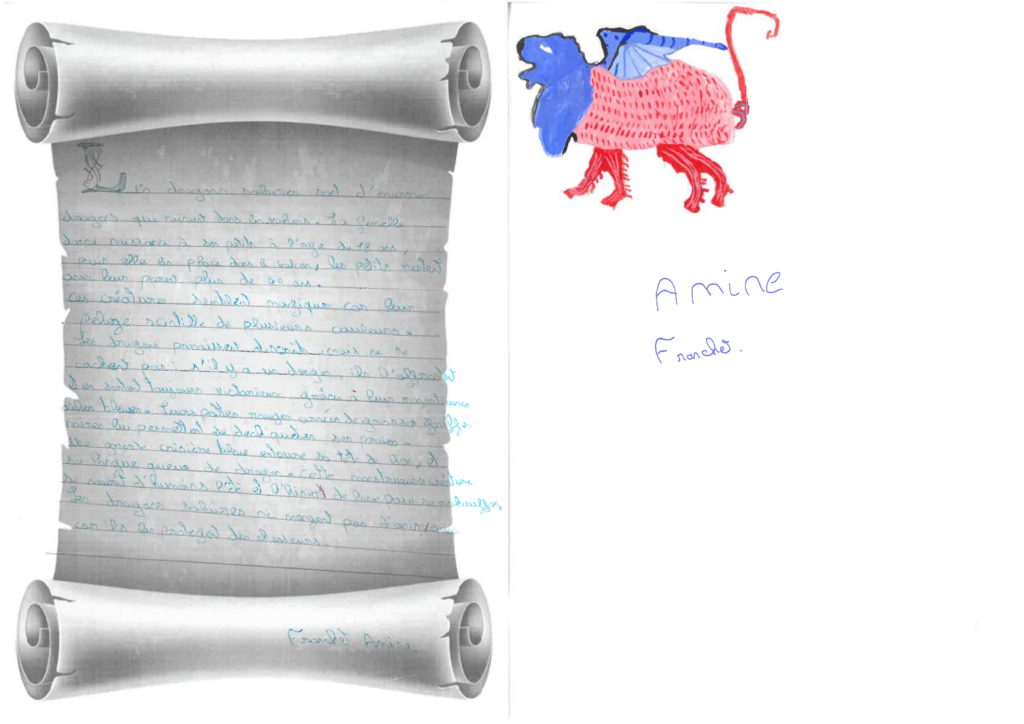 Les dragons solaires sont d'énormes
dragons qui vivent dans les volcans. La femelle
donne naissance à ses petits à l'age de 78 ans,
puis elle les place dans le volcan, les petits restent
avec leur parent plus de 40 ans.
ces créatures semblent magiques car leur
pelage scintille de plusieurs couleurs.
Les dragons paraissent discrets mais ne se
cachent pas : s'il y a un danger, ils l'affrontent
et en sortent toujours victorieux grâce à leur
ailes bleues. Leurs pattes rouges de grosses griffes
noires lui permettent de déchiqueter ses proies.
Une grande crinière bleue entoure sa tête de lion, et
sa longue queue de dragon. Cette monstrueuse créature
se nourrit d'humains et de lave pour se réchauffer.
Les dragons solaires ne mangent pas d'animaux
car ils les protègent des chasseurs.
Franchet Amine
Amine
Franchet.